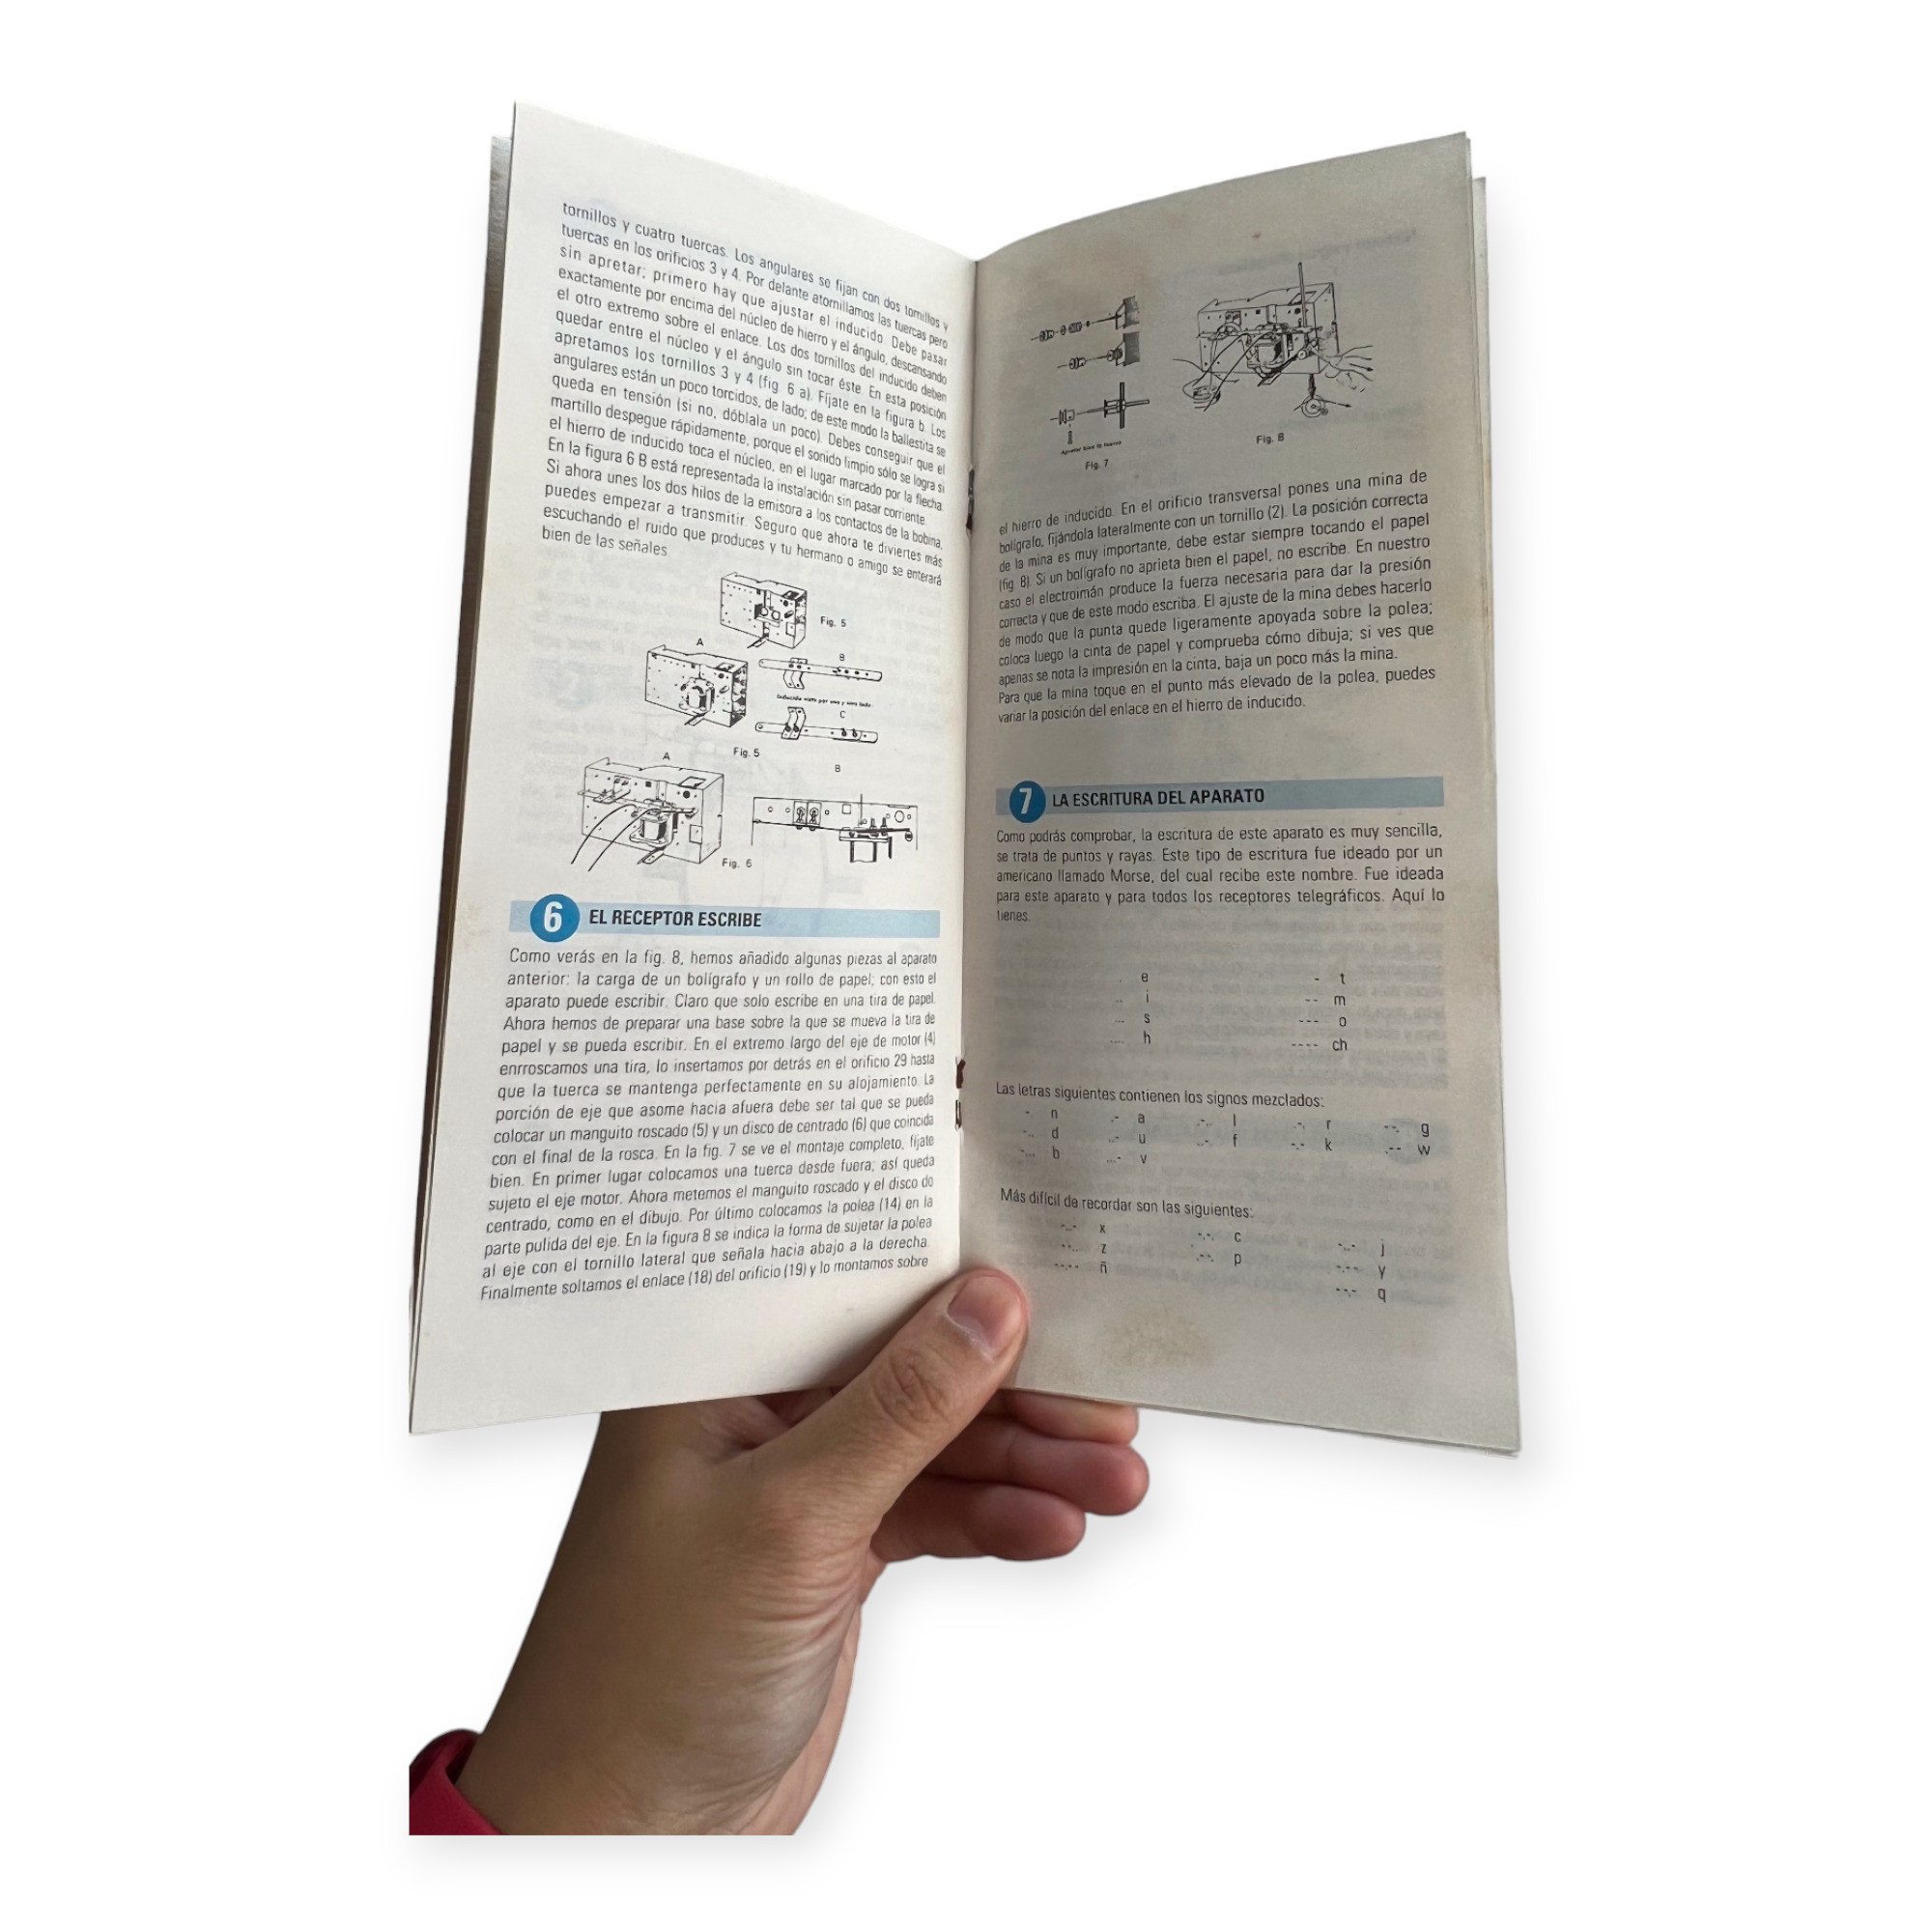 tornillos y cuatro tuercas. Los angulares se fijan con dos tornillos y
tuercas en los orificios 3 y 4. Por delante atornillamos las tuercas pero
sin apretar; primero hay que ajustar el inducido. Debe pasar
exactamente por encima del núcleo de hierro y el ángulo, descansando
el otro extremo sobre el enlace. Los dos tornillos del inducido deben
quedar entre el núcleo y el ángulo sin tocar éste. En esta posición
apretamos los tornillos 3 y 4 (fig 6 a). Fíjate en la figura b. Los
angulares están un poco torcidos, de lado; de este modo la ballestita se
queda en tensión (si no, dóblala un poco). Debes conseguir que el
martillo despegue rápidamente, porque el sonido limpio sólo se logra si
el hierro de inducido toca el núcleo, en el lugar marcado por la flecha.
En la figura 6 B está representada la instalación sin pasar corriente.
Si ahora unes los dos hilos de la emisora a los contactos de la bobina,
puedes empezar a transmitir. Seguro que ahora te diviertes más
escuchando el ruido que produces y tu hermano o amigo se enterará
bien de las señales
Fig. 5
A
B
Inducido visto por uno y otro lado.
C
Fig. 5
A
B
Fig. 6
6 EL RECEPTOR ESCRIBE
Como verás en la fig. 8, hemos añadido algunas piezas al aparato
anterior: la carga de un bolígrafo y un rollo de papel; con esto el
aparato puede escribir. Claro que solo escribe en una tira de papel.
Ahora hemos de preparar una base sobre la que se mueva la tira de
papel y se pueda escribir. En el extremo largo del eje de motor (4)
enrroscamos una tira, lo insertamos por detrás en el orificio 29 hasta
que la tuerca se mantenga perfectamente en su alojamiento. La
porción de eje que asome hacia afuera debe ser tal que se pueda
colocar un manguito roscado (5) y un disco de centrado (6) que coincida
con el final de la rosca. En la fig. 7 se ve el montaje completo, fíjate
bien. En primer lugar colocamos una tuerca desde fuera; así queda
sujeto el eje motor. Ahora metemos el manguito roscado y el disco de
centrado, como en el dibujo. Por último colocamos la polea (14) en la
parte pulida del eje. En la figura 8 se indica la forma de sujetar la polea
al eje con el tornillo lateral que señala hacia abajo a la derecha.
Finalmente soltamos el enlace (18) del orificio (19) y lo montamos sobre
Apretar bien la tuerca
Fig. 7
Fig. 8
el hierro de inducido. En el orificio transversal pones una mina de
bolígrafo, fijándola lateralmente con un tornillo (2). La posición correcta
de la mina es muy importante, debe estar siempre tocando el papel
(fig. 8). Si un bolígrafo no aprieta bien el papel, no escribe. En nuestro
caso el electroimán produce la fuerza necesaria para dar la presión
correcta y que de este modo escriba. El ajuste de la mina debes hacerlo
de modo que la punta quede ligeramente apoyada sobre la polea;
coloca luego la cinta de papel y comprueba cómo dibuja; si ves que
apenas se nota la impresión en la cinta, baja un poco más la mina.
Para que la mina toque en el punto más elevado de la polea, puedes
variar la posición del enlace en el hierro de inducido.
7 LA ESCRITURA DEL APARATO
Como podrás comprobar, la escritura de este aparato es muy sencilla,
se trata de puntos y rayas. Este tipo de escritura fue ideado por un
americano llamado Morse, del cual recibe este nombre. Fue ideada
para este aparato y para todos los receptores telegráficos. Aquí lo
tienes.
. e - t
.. i -- m
... s --- o
.... h ---- ch
Las letras siguientes contienen los signos mezclados:
n a l r g
d u f k w
b v
Más difícil de recordar son las siguientes:
x c j
z p y
ñ q